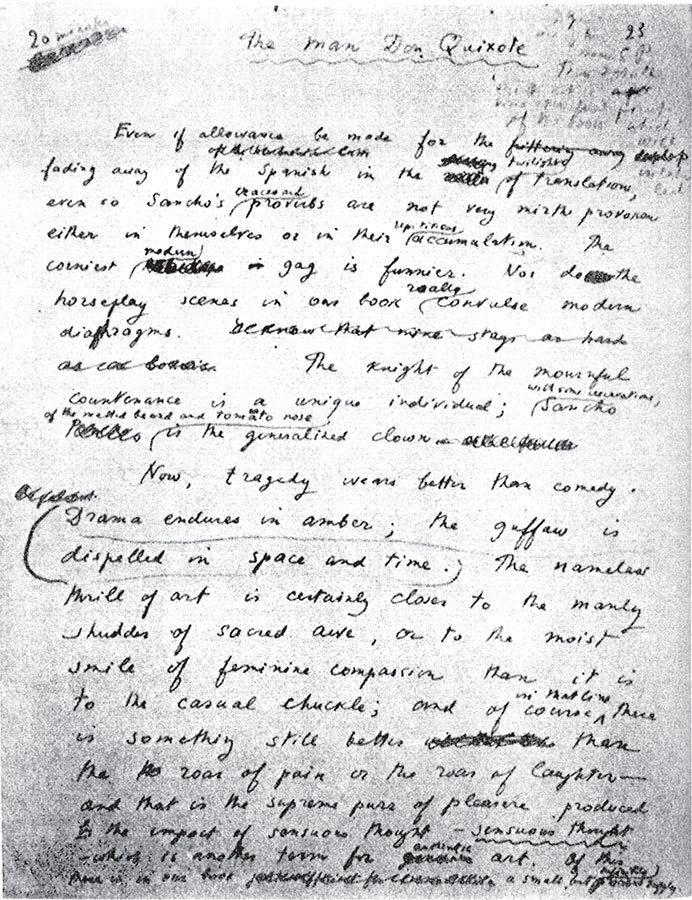 20 minutes
23
The Man Don Quixote
Even if allowance be made for the frittering away
fading away of the Spanish in the twilight of translation,
even so Sancho's cracks and proverbs are not very mirth provoking
either in themselves or in their repetitious accumulation. The
corniest modern gag is funnier. Nor do the
horseplay scenes in our book really convulse modern
diaphragms.
The Knight of the mournful
countenance is a unique individual; with some reservations, Sancho
of the matted beard and tomato nose is the generalized clown
Now, tragedy wears better than comedy.
(Drama endures in amber; the guffaw is
dispelled in space and time.) The nameless
thrill of art is certainly closer to the manly
shudder of sacred awe, or to the moist
smile of feminine compassion than it is
to the casual chuckle; and of course, in that line there
is something still better than
the roar of pain or the roar of laughter—
and that is the supreme purr of pleasure produced
by the impact of sensuous thought – sensuous thought
– which is another term for authentic art. Of this
there is in our book a small but infinitely precious supply